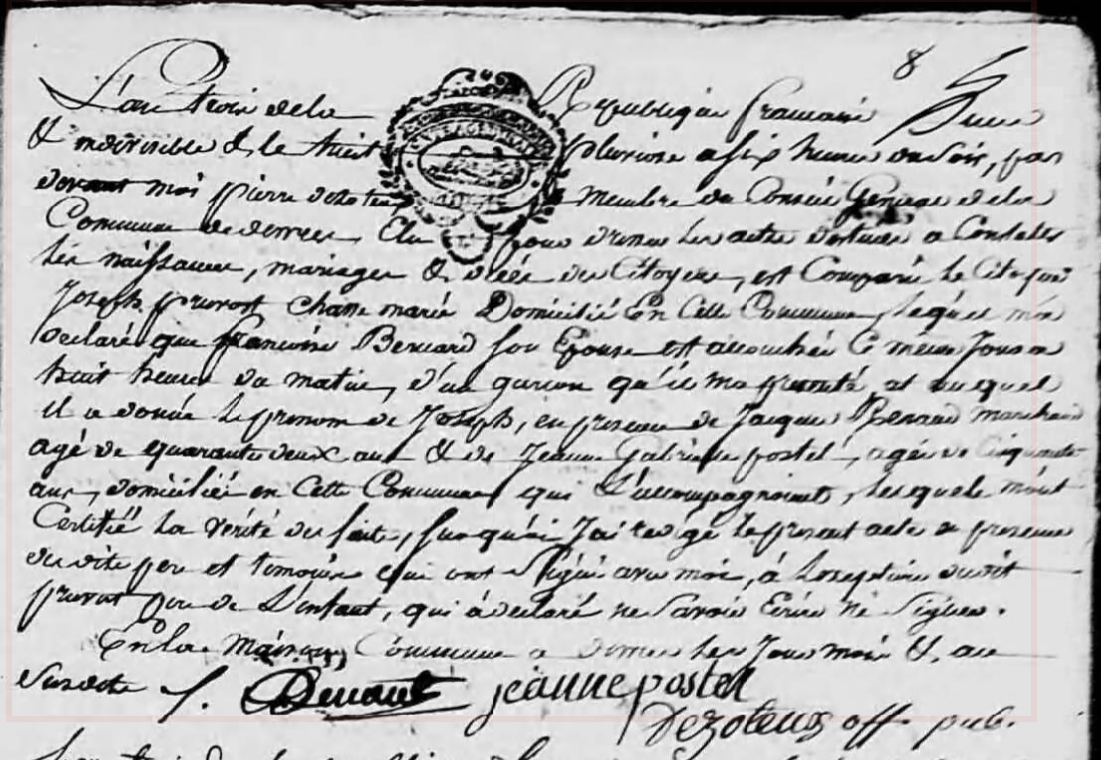 8
L'an trois de la République francaise Une
& indivisible & le huit pluviose a six heure du soir, par
devant moi pierre dezoteux Membre du Conseil General de la
Commune de desvres, Elu pour dresser les actes destinés a Constater
les naissances, mariages & décés des Citoyens, est Comparu le Citoyen
Joseph pruvost Chasse marée Domicilié En Cette Commune, lequel m'a
declaré que françoise Bernard son Epouse est accouchée Ce meme Jour a
huit heures du matin, d'un garcon qu'il m'a presenté, et auquel
il a donné le prenom de Joseph, en presence de Jacque Bernard marchand
agé de quarante deux ans & de Jeanne Gabrielle postel, agée de Cinquante
ans, domicilié en Cette Commune qui L'accompagnoient, lesquels m'ont
Certifié La vérité du fait, sur quoi J'ai redigé le present acte en presence
du dit pere et temoins qui ont Signé avec moi, à L'exception du dit
pruvost pere de L'enfant, qui à declaré ne savoir Ecrire ni Signer.
En la Maison Commune a desvres les Jour mois & an
Susdits J. Benard jeanne postel
Dezoteux off. pub.